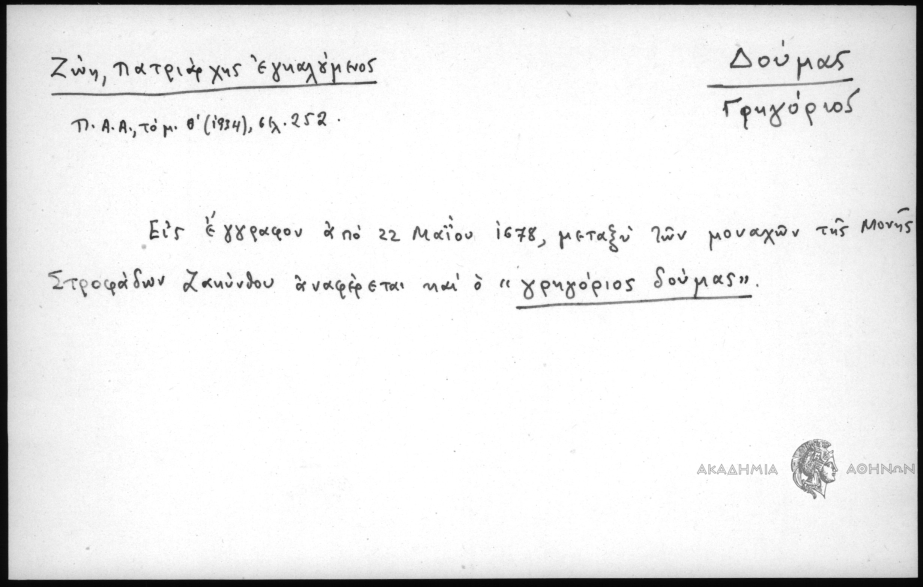 Ζώη, Πατριάρχης ἐγκαλούμενος
Δούμας
Γρηγόριος
Π.Α.Α., τόμ. Θ' (1934), σελ. 252.
Εἰς ἔγγραφον ἀπό 22 Μαΐου 1678, μεταξύ τῶν μοναχῶν τῆς Μονῆς
Στροφάδων Ζακύνθου ἀναφέρεται καί ὁ «γρηγόριος δούμας».
ΑΚΑΔΗΜΙΑ ΑΘΗΝΩΝ